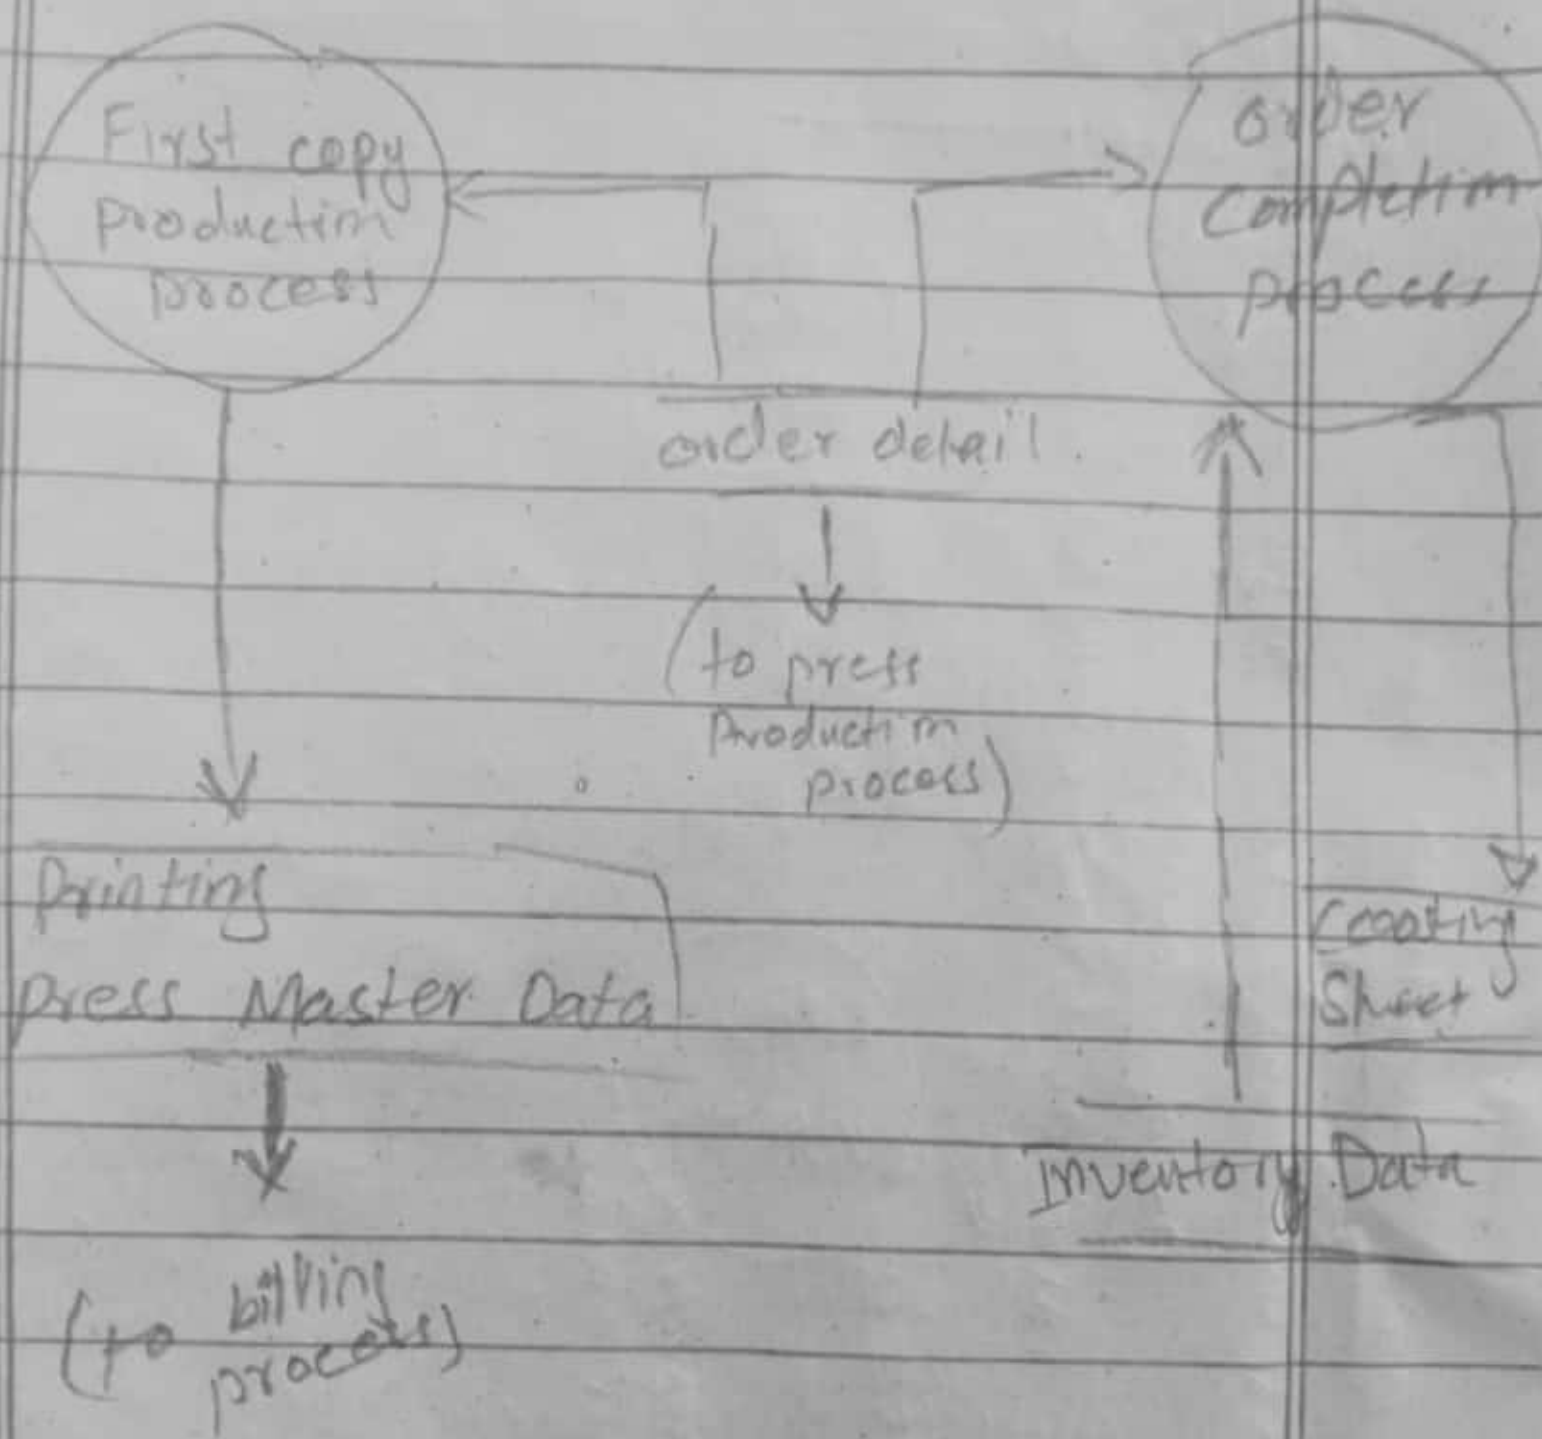 First copy
production
process
order
completion
process
order detail.
(to press
production
process)
Printing
press Master Data
Sheet
Inventory Data
(to billing
process)